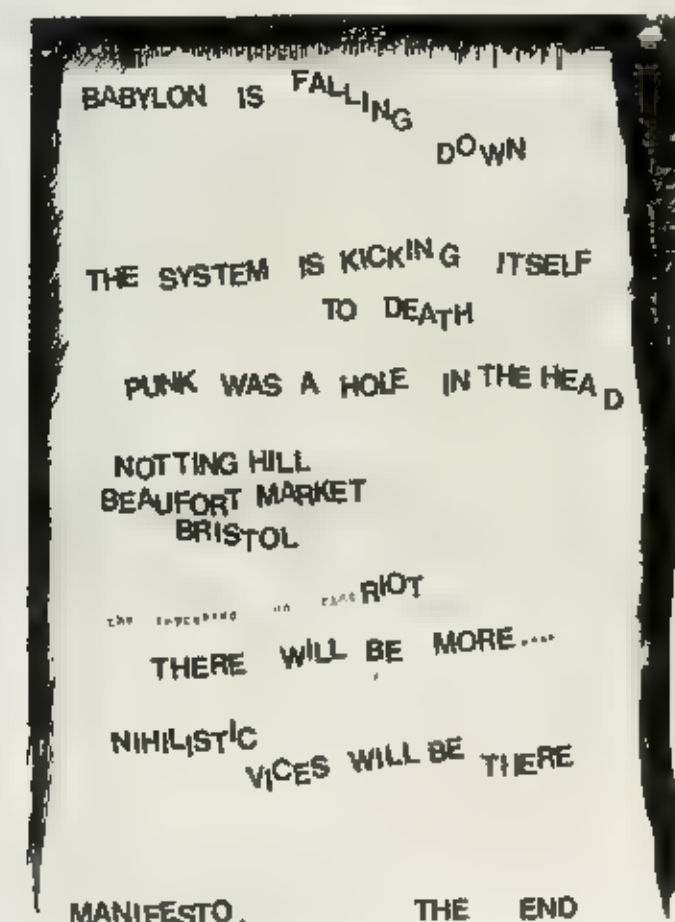 BABYLON IS FALLING
DOWN
THE SYSTEM IS KICKING ITSELF
TO DEATH
PUNK WAS A HOLE IN THE HEAD
NOTTING HILL
BEAUFORT MARKET
BRISTOL
the RIOT
THERE WILL BE MORE....
NIHILISTIC
VICES WILL BE THERE
MANIFESTO. THE END